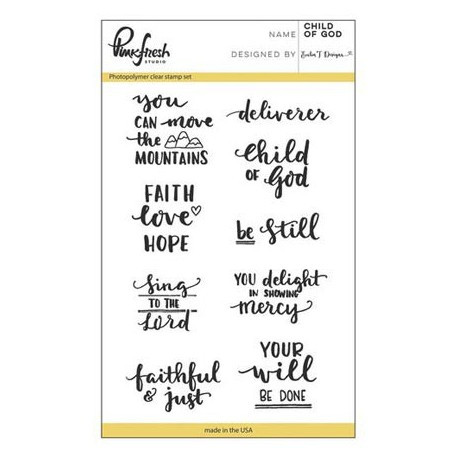 Pinkfresh
STUDIO
NAME
CHILD
OF GOD
DESIGNED BY
Photopolymer clear stamp set
you
CAN move
the
MOUNTAINS
FAITH
love
HOPE
sing
TO THE
Lord
faithful
& just
deliverer
child
OF God
be still
YOU delight
IN SHOWING
mercy
YOUR
will
BE DONE
made in the USA